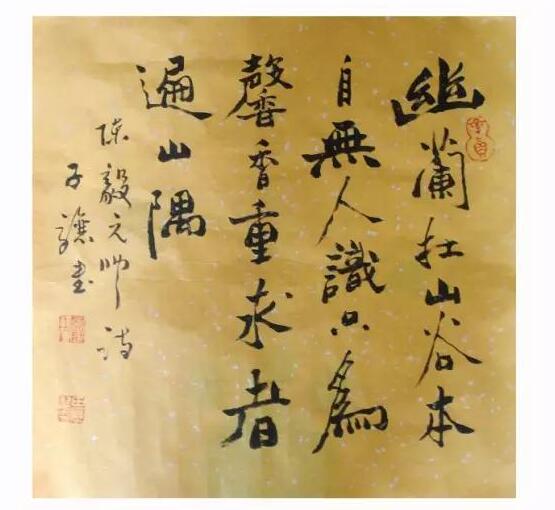 幽蘭在山谷本
自無人識只為
馨香重求者
遍山隅
陳毅元帥詩
子書